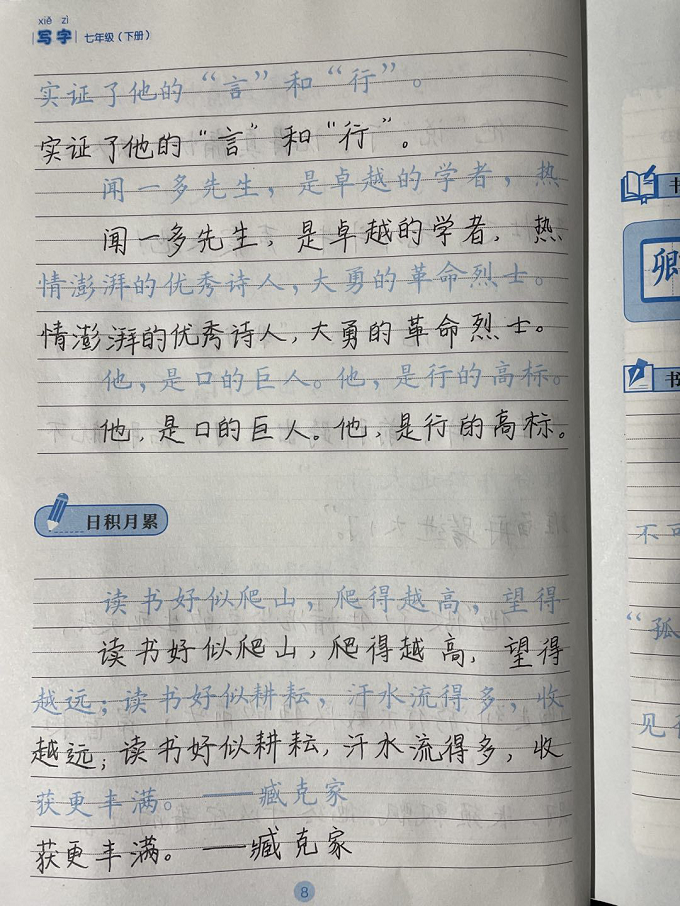 xiě zì
写字 七年级（下册）
实证了他的“言”和“行”。
实证了他的“言”和“行”。
闻一多先生，是卓越的学者，热
闻一多先生，是卓越的学者，热
情澎湃的优秀诗人，大勇的革命烈士。
情澎湃的优秀诗人，大勇的革命烈士。
他，是口的巨人。他，是行的高标。
他，是口的巨人。他，是行的高标。
日积月累
读书好似爬山，爬得越高，望得
读书好似爬山，爬得越高，望得
越远；读书好似耕耘，汗水流得多，收
越远；读书好似耕耘，汗水流得多，收
获更丰满。——臧克家
获更丰满。——臧克家
8
书
卿
书
不可
“孤
见